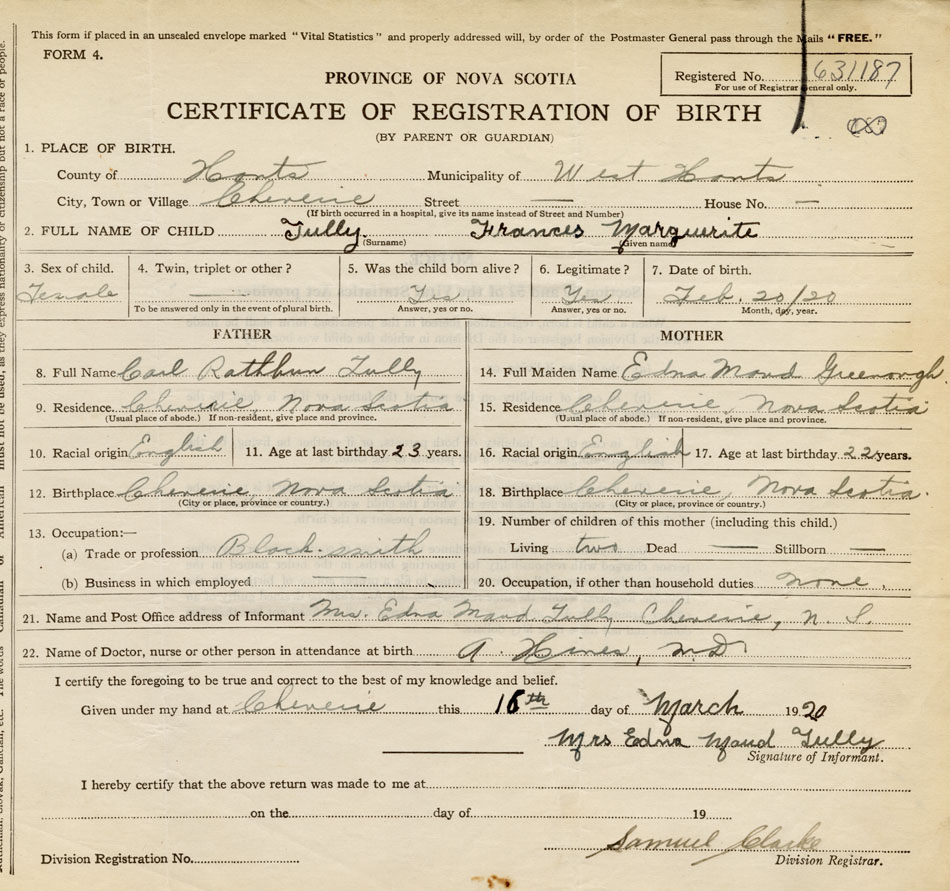 This form if placed in an unsealed envelope marked "Vital Statistics" and properly addressed will, by order of the Postmaster General pass through the Mails "FREE."
FORM 4.
Registered No. 631187
For use of Registrar General only.
PROVINCE OF NOVA SCOTIA
CERTIFICATE OF REGISTRATION OF BIRTH
(BY PARENT OR GUARDIAN)
1. PLACE OF BIRTH.
County of Hants Municipality of West Hants
City, Town or Village Cheverie Street — House No. —
(If birth occurred in a hospital, give its name instead of Street and Number)
2. FULL NAME OF CHILD Tully Frances Marguerite
(Surname) (Given name)
3. Sex of child. 4. Twin, triplet or other? 5. Was the child born alive? 6. Legitimate? 7. Date of birth.
Female — Yes Yes Feb. 20/20
To be answered only in the event of plural birth. Answer, yes or no. Answer, yes or no. Month, day, year.
FATHER
8. Full Name Carl Rathbun Tully
9. Residence. Cheverie, Nova Scotia
(Usual place of abode.) If non-resident, give place and province.
10. Racial origin English 11. Age at last birthday 23 years.
12. Birthplace Cheverie, Nova Scotia
(City or place, province or country.)
13. Occupation:—
(a) Trade or profession Black-smith
(b) Business in which employed —
MOTHER
14. Full Maiden Name Edna Maud Greenough
15. Residence Cheverie, Nova Scotia
(Usual place of abode.) If non-resident, give place and province.
16. Racial origin English 17. Age at last birthday 22 years.
18. Birthplace Cheverie, Nova Scotia.
(City or place, province or country.)
19. Number of children of this mother (including this child.)
Living two Dead — Stillborn —
20. Occupation, if other than household duties none.
21. Name and Post Office address of Informant Mrs. Edna Maud Tully Cheverie, N. S.
22. Name of Doctor, nurse or other person in attendance at birth A. Hines, M.D.
I certify the foregoing to be true and correct to the best of my knowledge and belief.
Given under my hand at Cheverie this 16th day of March 1920
Mrs Edna Maud Tully
Signature of Informant.
I hereby certify that the above return was made to me at
on the day of 19
Samuel Clarke
Division Registrar.
Division Registration No.